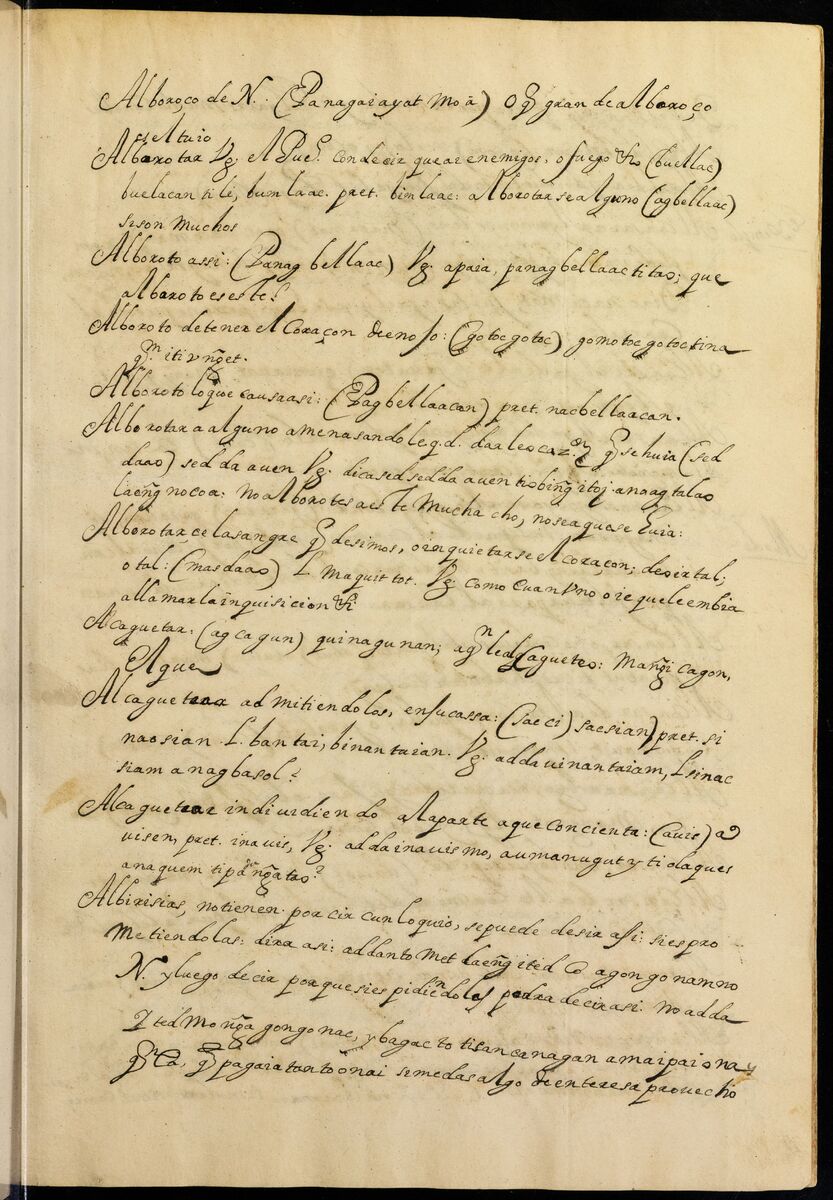 Alboroço de N. (Panagaiayat Mo ā) O q̃ gran de alboroço
es el tuio
Alborotar Vg. el Pueo. con decir que ai enemigos, o fuego &o (buellac)
buelacan tili, bumlaac. pret. bimlaac: alborotarse alguno (agbellaac)
si son muchos
Alboroto assi: (Panag bellaac) Vg. apaia, panagbellaac titao; que
alboroto es este?
Alboroto de tener el Coraçon de enojo: (gotoc gotoc) gomotoc gotoc tina
q.m iti vñget.
Alboroto lo que causa asi: (Pagbellaacan) pret. nacbellaacan.
Alborotar a alguno amenasandole q.d. darleo caz.on q̃ se huia (sed
daao) sed da auen Vg. dica sed sedda auen tiobiñg itoj. anaagtalao
laeñg nocoa: no alborotes a este Muchacho, no sea que se huia:
Alborotarce la sangre q̃ desimos, o inquietarse el coraçon; de oir tal;
o tal: (masdaao) L. maquittot. Vg. como cuan Vno oie que le embia
allamar la inquisicion &i
Alcaguetar: (agcagun) quinagunan; agn
Alcaguetear admitiendolos, en su cassa: (saeci) saesian, pret. si
naosian. L. bantai, binantaian. Vg. adda vinantaiam, L sinac
siam a nagbasol?
Alcaguetear indiuidiendo a la parte a que concienta: (auis) a
uisen, pret. inauis, Vg. adda inauismo, aumanugut y ti olaques
anaquem tipañgatao?
Albirisias, no tienen. por circunloquio, se puede desir asi: si es pro
metiendolas: dira asi: addanto met laeñg ited co agongonamno
N. y luego decir porque si es pidiendolas podra decir asi. no adda
Ited Mo ñga gongonac, y bagac to tisancanagan amaipaiona y
q.n Ca, q̃ pagaiatantōnai se me das algo de enteres a prouecho